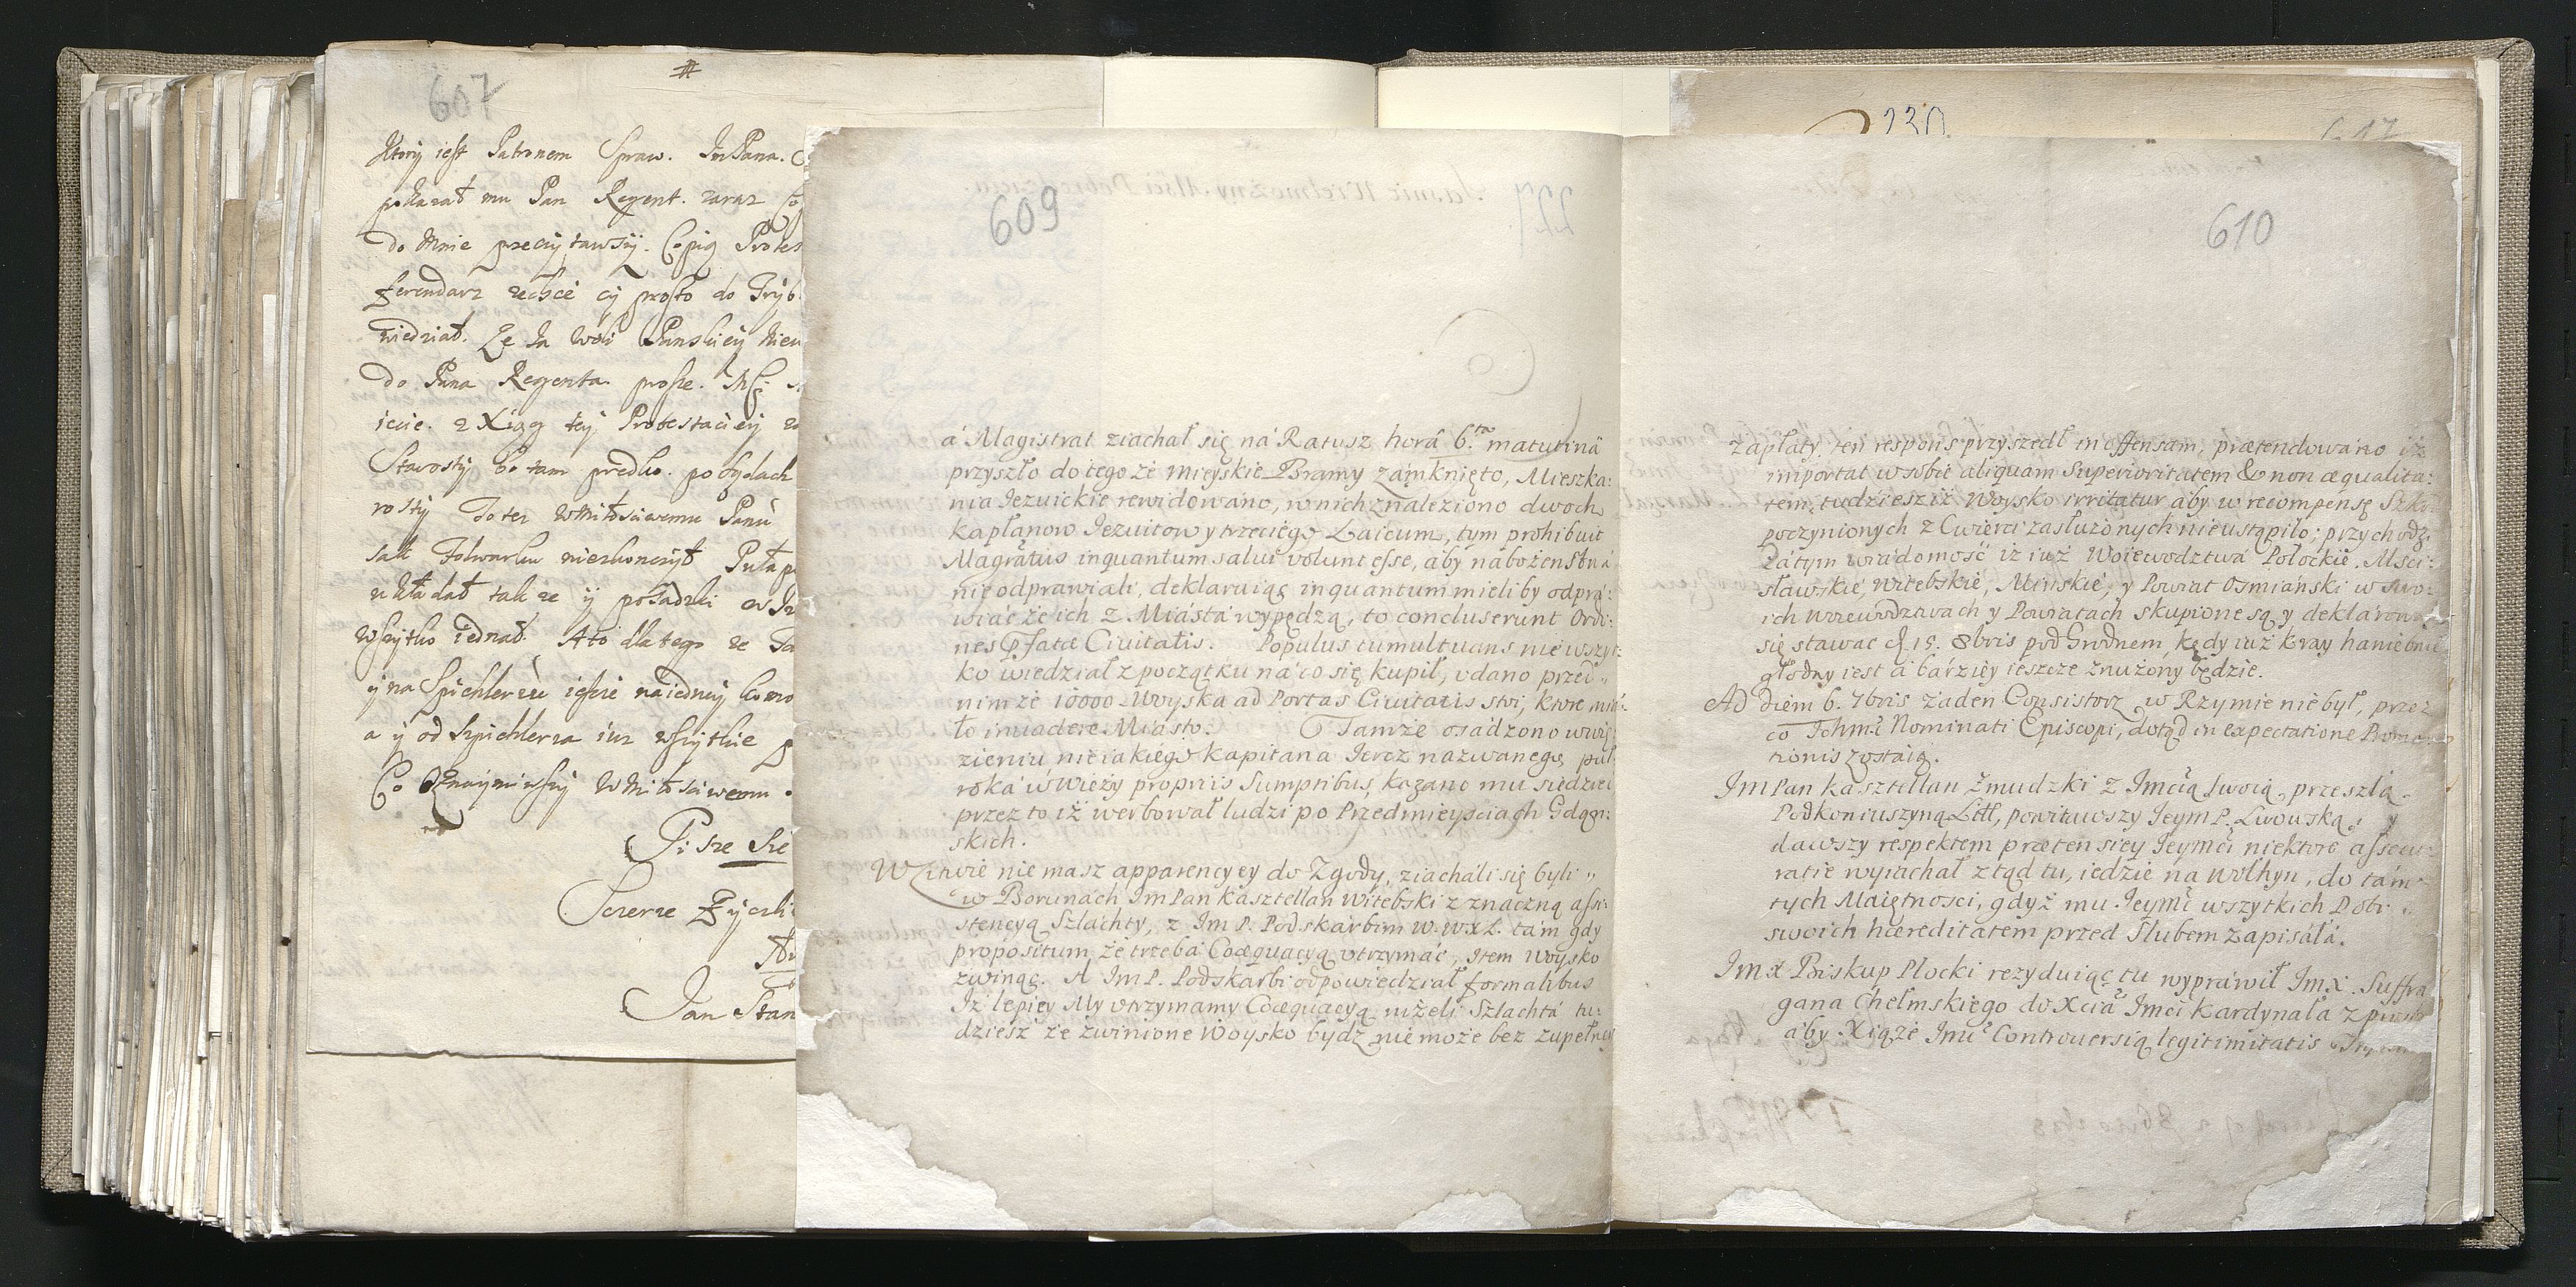 607
Który iest Patronem Spraw. ImPana.
pokazał mu Pan Regent. zaraz
do Mnie przeczytawszy. Copią
ferendarz ieście cy prosto do Tryb
wiedział. Że Ja woli Panskiey
do Pana Regenta. prosze.
iecie. z Xiąg tey Protestaciey
Starosty bo tam predko. po
rosty To ten WMiłosciwemu Panu
sak Folwarku niezkonczył
układał takze y posadzki
wszytko iednał. Ato dla tego ze
y na Spichlerzu ieście na iedney
a y od Szpichlerza iuz wszytkie
Co Oznaymiwszy WMiłosciwemu
Pisze Sie
Szczerze Życzli
Jan Stan
609
á Magistrat ziachał się ná Ratusz horâ 6.ta maturinâ
przyszło do tego że mieyskie Bramy zámknięto, Mieszka:
nia Iezuickie rewidowáno, w nich znaleziono dwoch
Kapłanow Iezuitow y trzeciego Laicum, tym prohibuit
Magratus inquantum salui volunt esse, aby nábożenstwá
nie odprawiali, deklaruiąc inquantum mieliby odprá:
wiáć że ich z Miástá wypędzą, to concluserunt Ordi:
nes Pfatæ Civitatis. Populus tumultuans nie wszyt:
ko wiedział z początku ná co się kupił, vdano przed
nim że 10000 Woyska ad Portas Civitatis stoi, ktore miá:
ło inuadere Miásto. Tamże osádzono w wię
zieniu nieiakiego Kapitana Ierez nazwanego, puł
roká w Wieży propriis Sumptibus, kazano mu siedzieć
przez to iż werbował ludzi po Przedmieyściach Gdąn:
skich.
W Litwie nie masz apparencyey do Zgody, ziacháli się byli
w Borunách Im Pan Kasztellan Witebski z znaczną assi:
stencyą Szlachty, z Im P. Podskárbim W. W.X.L. tám gdy
propositum, że trzebá Coæquacyą vtrzymáć, Item Woysko
zwinąć. A Im P. Podskárbi odpowiedział formalibus
Iż lepiey My vtrzymamy Coæquacyą niżeli Szlachtá tu:
dziesz że zwinione Woysko bydź nie może bez zupełney
610
zapłaty, ten respons przyszedł in offensam, prætendowáno iż
importat w sobie aliquam Superioritatem & non æqualita:
tem, tudziesz iż Woysko irritatur aby w recompensę Szkod
poczynionych z Cwierci zasłużonych nie ustąpiło; przychodzi
zátym wiádomość iż iuż Woiewodztwá Połockie, Mści:
sławskie, Witebskie, Mińskie, y Powiat Osmiański w swo:
ich Woiewodztwach y Powiatach skupione są, y deklárowały
się stawac d. 15. 8bris pod Grodnem, kędy iuż kray haniebnie
głodny iest á bárziey ieszcze znużony będzie.
Ad diem 6. 7bris żaden Consistorz w Rzymie nie był, przez
co Ichmć Nominati Episcopi, dotąd in expectatione Promo
tionis zostáią.
Im Pan Kasztellan Żmudzki z Imcią swoią, przeszłą
Podkoniuszyną Litt, powitawszy Ieym P. Lwowską, y
dawszy respektem prætensiey Ieymci niektore assecu
ratie wyiachał ztąd tu, iedzie na Wołhyn, do tám
tych Maiętnosci, gdyż mu Ieymć wszytkich Dobr
swoich hæreditatem przed Slubem zápisáłá.
Im X Biskup Płocki rezyduiąc tu wypráwił Im X. Suffra
gana Chełmskiego do Xcia Imci Kardynała z
aby Xiąże Imć Controuersią legitimitatis